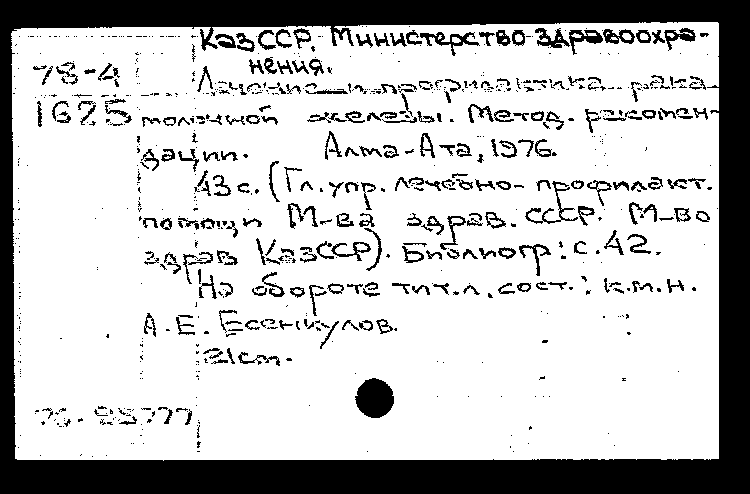 КазССР. Министерство здравоохра-
нения.
78-4
Лечение и профилактика рака
1625
молочной железы. Метод. рекомен-
дации. Алма-Ата, 1976.
43 с. (Гл. упр. лечебно-профилакт.
помощи М-ва здрав. СССР. М-во
здрав КазССР). Библиогр: с. 42.
На обороте тит. л. сост.: к.м.н.
А.Е. Есенкулов.
21 cm.